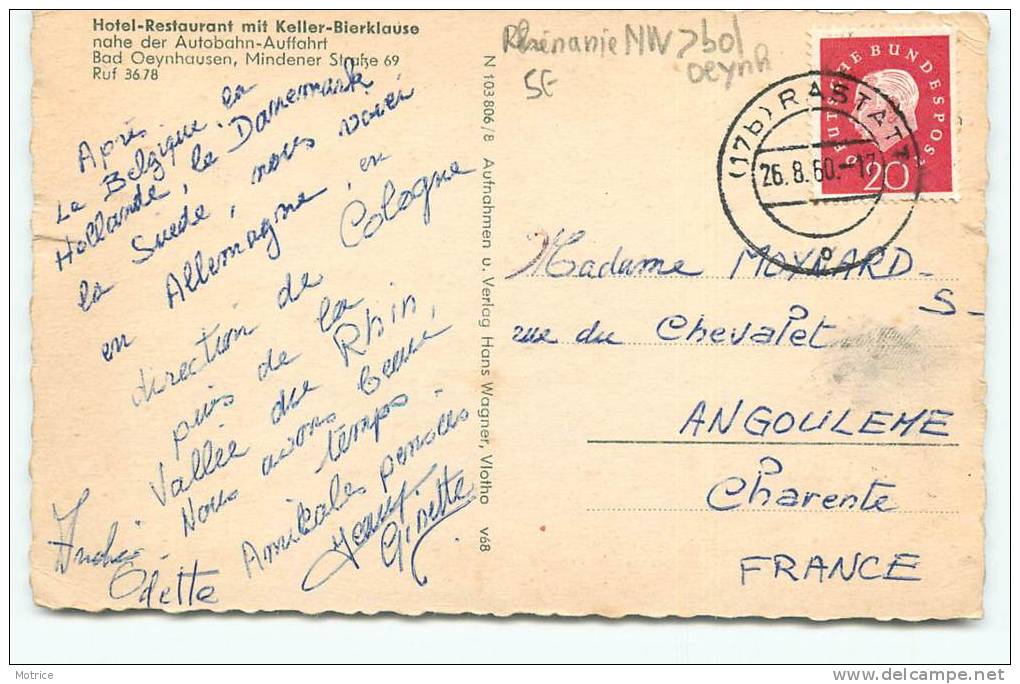 Hotel-Restaurant mit Keller-Bierklause
nahe der Autobahn-Auffahrt
Bad Oeynhausen, Mindener Straße 69
Ruf 3678
Après la
Belgique, la
Hollande, le Danemark
la Suède, nous voici
en Allemagne, en
direction de Cologne
puis de la
Vallée du Rhin,
Nous avons beau
temps.
Amicales pensées
André
Odette
Ginette
N 103 806/8 Aufnahmen u. Verlag Hans Wagner, Vlotho V68
Rhénanie NW > bol
oeynh
5E
DEUTSCHE BUNDESPOST
20
(17b) RASTATT
26.8.60.-17
b
Madame MOYNARD
5-
rue du Chevalet
ANGOULEME
Charente
FRANCE
Motrice
delcampe.net